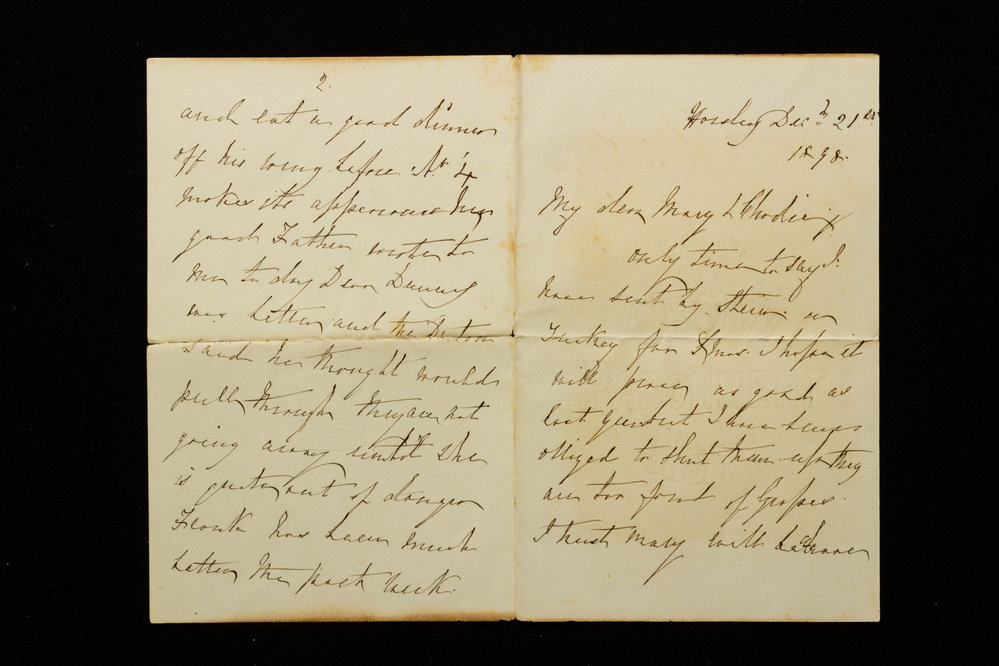 Horsley Decr 21st
1898.
My dear Mary &
only time to say I
have sent by Steven a
Turkey for Xmas. I hope it
will prove as good as
last year but I have been
obliged to shut them up they
are too fond of Grapes.
I trust Mary will be down
2.
and eat a good dinner
off his wing before No 4
makes its appearance
good Father wrote to
me to day Dear
was better and the Doctor
said he thought would
pull through they are not
going away until she
is quite out of danger
Frank has been much
better the past week.